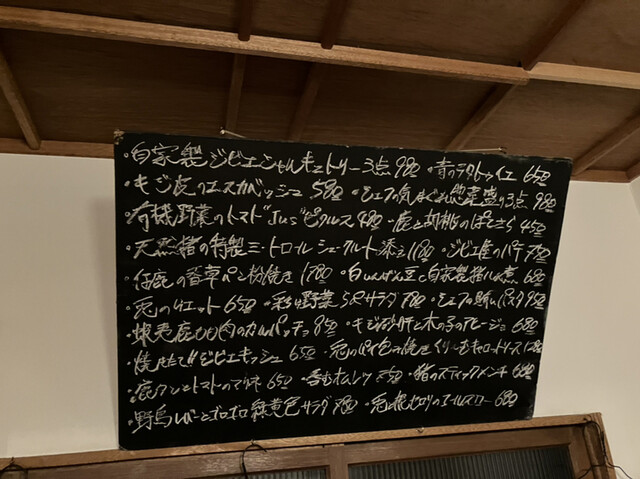 ・自家製ジビエシャルキュトリー3点 980 ・青のラタトゥイユ 650
・キジ皮のエスカベッシュ 580 ・シェフの気まぐれ惣菜盛り3点 980
・有機野菜のトマト"Jus"ピクルス 480 ・鹿と胡桃の 450
・天然猪の特製ミートロール シュークルート添え 1180 ・ジビエ のパテ
・仔鹿の香草パン粉焼き 1780 ・白いんげん豆と自家製 煮 680
・兎のリエット 650 ・彩り野菜 サラダ 780 ・シェフの賄いパスタ 950
・蝦夷鹿もも肉のカルパッチョ 850 ・キジ砂肝と木の子のアヒージョ 680
・焼きたて!!ジビエキッシュ 650 ・兎のパイ包み焼き ソース
・鹿タンとトマトのマリネ 650 ・オムレツ ・猪のスティックメンチ 680
・野鳥レバーとゴロゴロ緑黄色サラダ 780 ・兎と根セロリのコールスロー 680